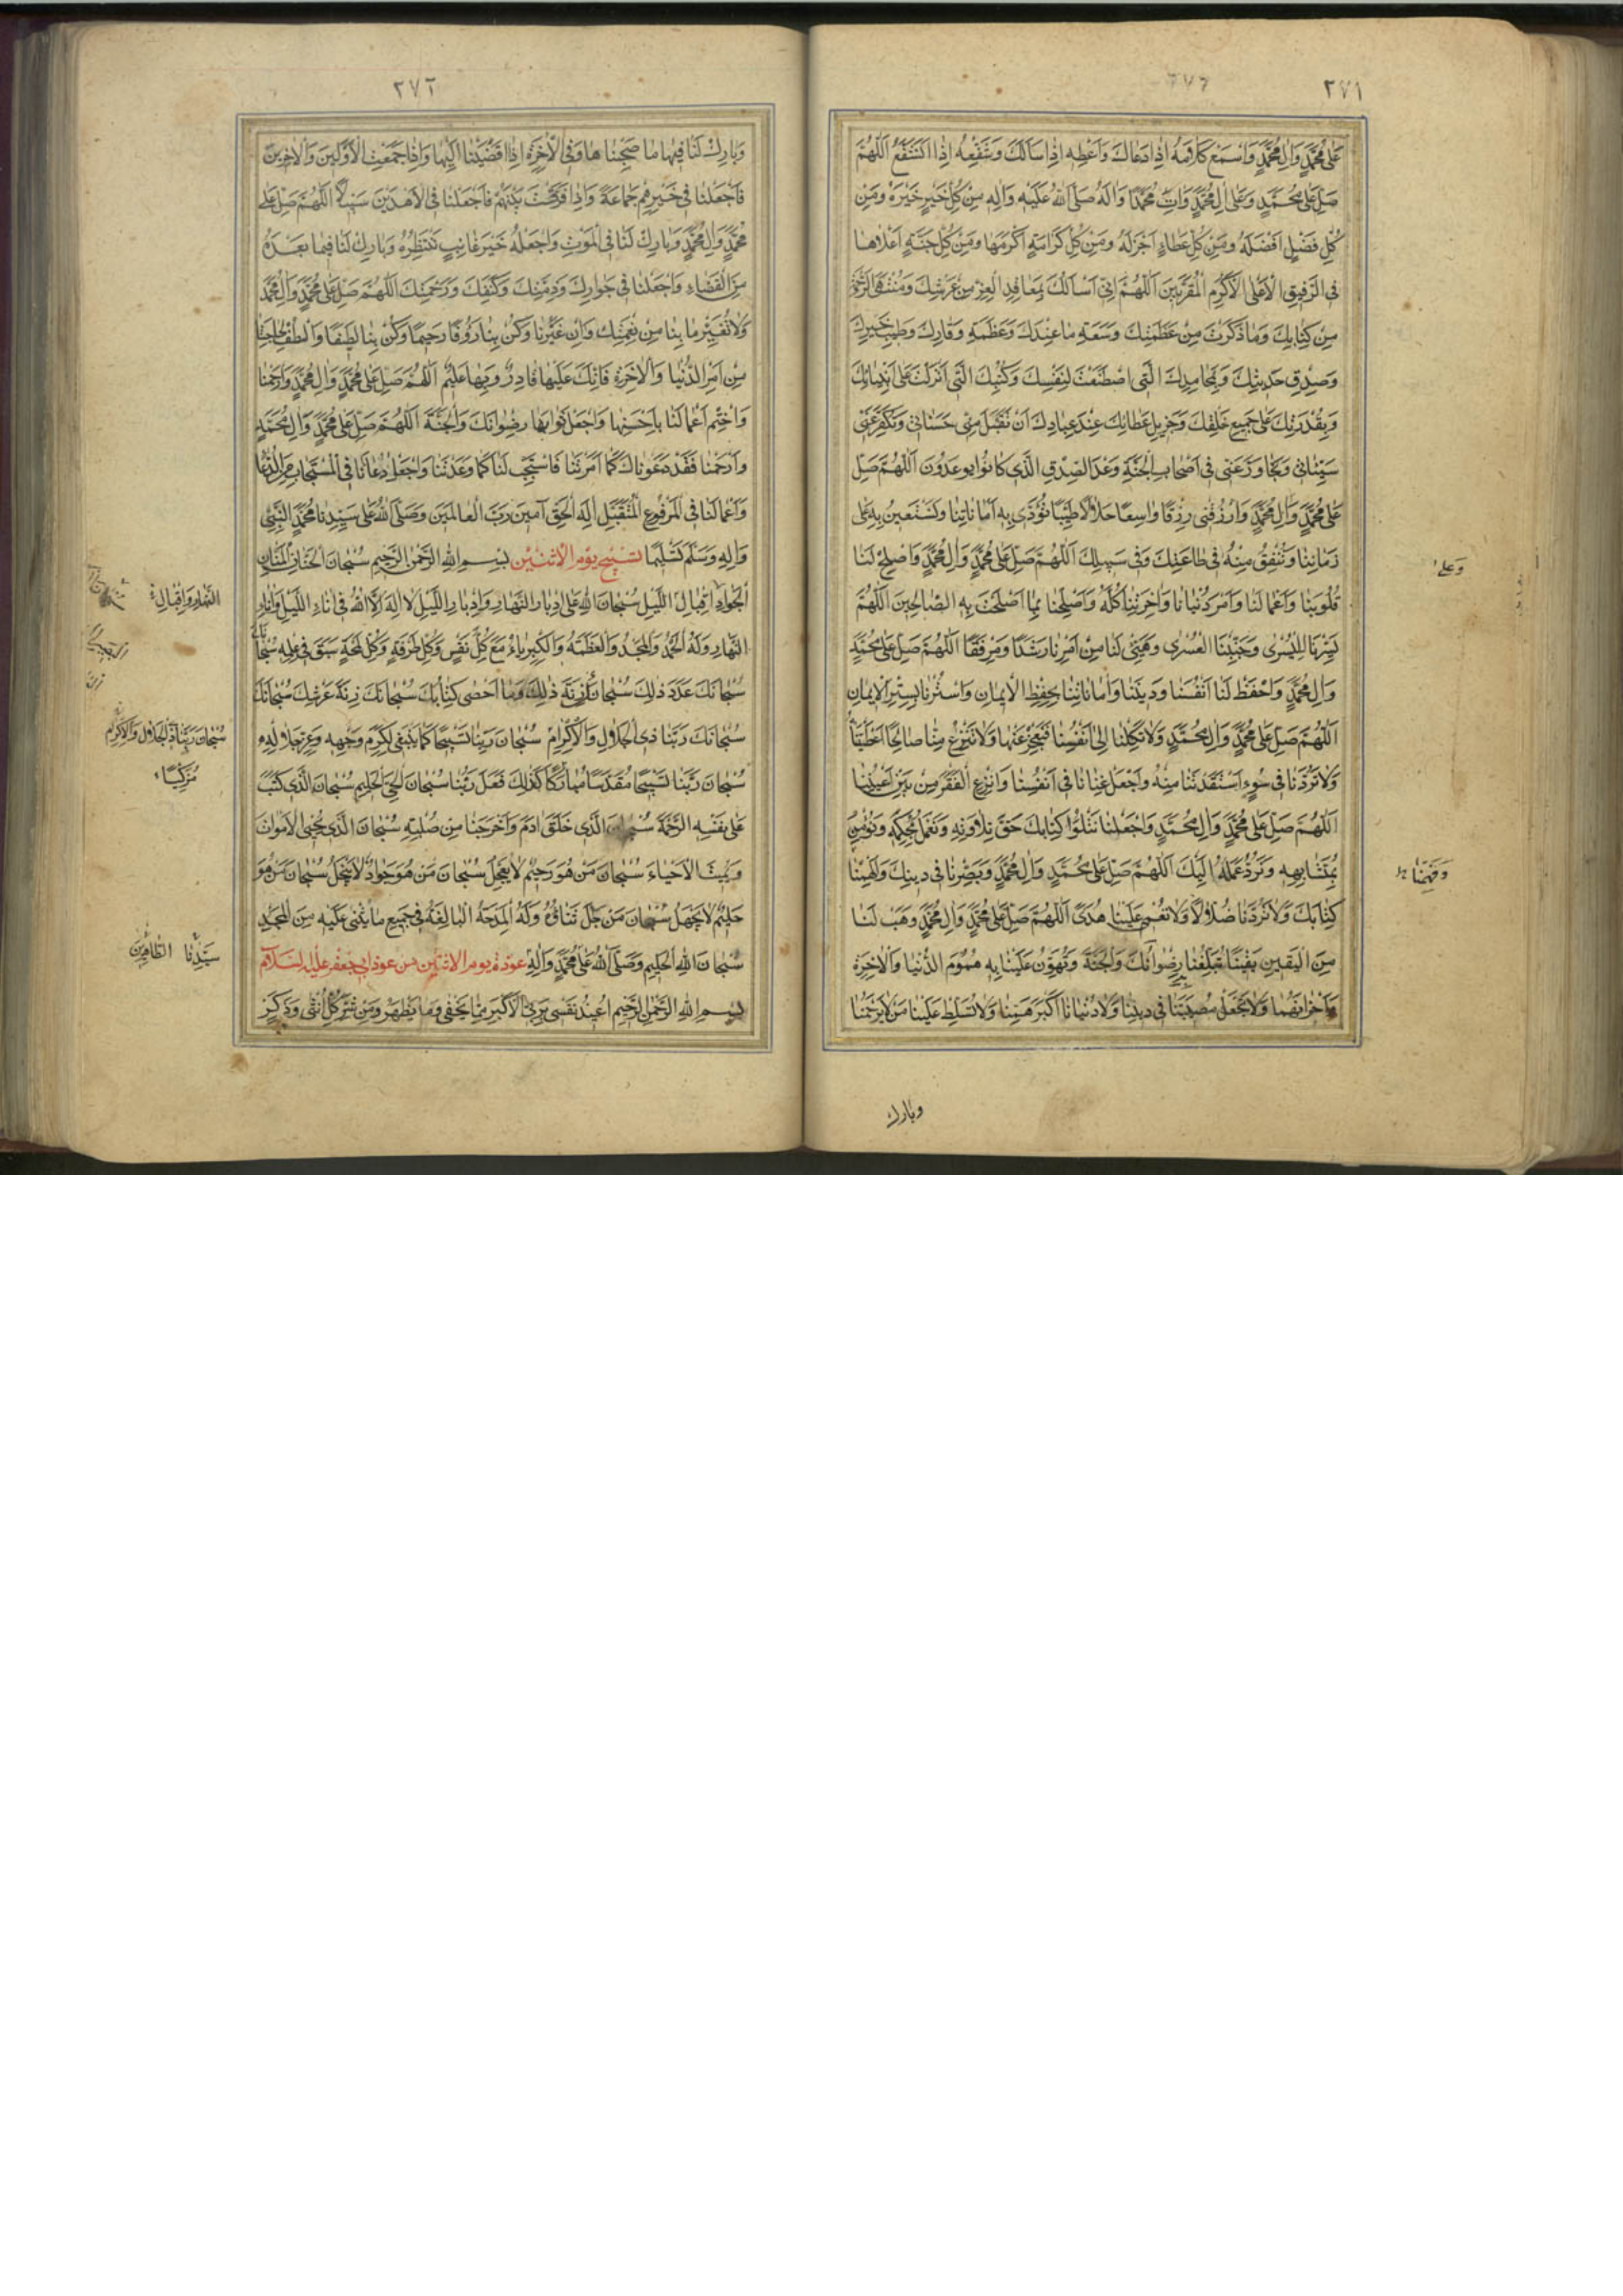 ٢٧١
عَلٰى مُحَمَّدٍ وَالِ مُحَمَّدٍ وَاسْمَعْ كَلَامَهُ اِذَا دَعَاكَ وَاَعْطِهِ اِذَا سَاَلَكَ وَشَفِّعْهُ اِذَا اسْتَشْفَعَ اَللّٰهُمَّ
صَلِّ عَلٰى مُحَمَّدٍ وَعَلٰى الِ مُحَمَّدٍ وَاتِ مُحَمَّدًا وَالَهُ صَلَّى اللهُ عَلَيْهِ وَالِهِ مِنْ كُلِّ خَيْرٍ خَيْرَهُ وَمِنْ
كُلِّ فَضْلٍ اَفْضَلَهُ وَمِنْ كُلِّ عَطَاءٍ اَجْزَلَهُ وَمِنْ كُلِّ كَرَامَةٍ اَكْرَمَهَا وَمِنْ كُلِّ جَنَّةٍ اَعْلَاهَا
فِى الرَّفِيقِ الْاَعْلَى الْاَكْرَمِ الْمُقَرَّبِينَ اَللّٰهُمَّ اِنِّى اَسْاَلُكَ بِمَعَاقِدِ الْعِزِّ مِنْ عَرْشِكَ وَمُنْتَهَى الرَّحْمَةِ
مِنْ كِتَابِكَ وَمَا ذَكَرْتَ مِنْ عَظَمَتِكَ وَسَعَةِ مَا عِنْدَكَ وَعَظَمَةِ وَقَارِكَ وَطِيبِ خَيْرِكَ
وَصِدْقِ حَدِيثِكَ وَبِمَحَامِدِكَ الَّتِى اصْطَنَعْتَ لِنَفْسِكَ وَكُتُبِكَ الَّتِى اَنْزَلْتَ عَلٰى اَنْبِيَائِكَ
وَبِقُدْرَتِكَ عَلٰى جَمِيعِ خَلْقِكَ وَجَزِيلِ عَطَائِكَ عِنْدَ عِبَادِكَ اَنْ تَقْبَلَ مِنِّى حَسَنَاتِى وَتُكَفِّرَ عَنِّى
سَيِّئَاتِى وَتَجَاوَزَ عَنِّى فِى اَصْحَابِ الْجَنَّةِ وَعْدَ الصِّدْقِ الَّذِى كَانُوا يُوعَدُونَ اَللّٰهُمَّ صَلِّ
عَلٰى مُحَمَّدٍ وَالِ مُحَمَّدٍ وَارْزُقْنِى رِزْقًا وَاسِعًا حَلَالًا طَيِّبًا نُؤَدِّى بِهِ اَمَانَاتِنَا وَنَسْتَعِينُ بِهِ عَلٰى
زَمَانِنَا وَنُنْفِقُ مِنْهُ فِى طَاعَتِكَ وَفِى سَبِيلِكَ اَللّٰهُمَّ صَلِّ عَلٰى مُحَمَّدٍ وَالِ مُحَمَّدٍ وَاَصْلِحْ لَنَا
قُلُوبَنَا وَاَعْمَالَنَا وَاَمْرَ دُنْيَانَا وَاخِرَتِنَا كُلَّهُ وَاَصْلِحْنَا بِمَا اَصْلَحْتَ بِهِ الصَّالِحِينَ اَللّٰهُمَّ
يَسِّرْنَا لِلْيُسْرٰى وَجَنِّبْنَا الْعُسْرٰى وَهَيِّئْ لَنَا مِنْ اَمْرِنَا رَشَدًا وَمِرْفَقًا اَللّٰهُمَّ صَلِّ عَلٰى مُحَمَّدٍ
وَالِ مُحَمَّدٍ وَاحْفَظْ لَنَا اَنْفُسَنَا وَدِينَنَا وَاَمَانَاتِنَا بِحِفْظِ الْاِيمَانِ وَاسْتُرْنَا بِسِتْرِ الْاِيمَانِ
اَللّٰهُمَّ صَلِّ عَلٰى مُحَمَّدٍ وَالِ مُحَمَّدٍ وَلَا تَكِلْنَا اِلٰى اَنْفُسِنَا فَنَعْجِزَ عَنْهَا وَلَا تَنْزِعْ مِنَّا صَالِحًا اَعْطَيْتَنَا
وَلَا تَرُدَّنَا فِى سُوءٍ اسْتَنْقَذْتَنَا مِنْهُ وَاجْعَلْ غِنَانَا فِى اَنْفُسِنَا وَانْزِعِ الْفَقْرَ مِنْ بَيْنِ اَعْيُنِنَا
اَللّٰهُمَّ صَلِّ عَلٰى مُحَمَّدٍ وَالِ مُحَمَّدٍ وَاجْعَلْنَا نَتْلُوا كِتَابَكَ حَقَّ تِلَاوَتِهِ وَنَعْمَلُ بِمُحْكَمِهِ وَنُؤْمِنُ
بِمُتَشَابِهِهِ وَنَرُدُّ عِلْمَهُ اِلَيْكَ اَللّٰهُمَّ صَلِّ عَلٰى مُحَمَّدٍ وَالِ مُحَمَّدٍ وَبَصِّرْنَا فِى دِينِكَ وَاَفْهِمْنَا
كِتَابَكَ وَلَا تَرُدَّنَا ضُلَّالًا وَلَا تُعْمِ عَلَيْنَا هُدًى اَللّٰهُمَّ صَلِّ عَلٰى مُحَمَّدٍ وَالِ مُحَمَّدٍ وَهَبْ لَنَا
مِنَ الْيَقِينِ يَقِينًا تُبَلِّغُنَا بِهِ رِضْوَانَكَ وَالْجَنَّةَ وَتُهَوِّنُ عَلَيْنَا بِهِ هُمُومَ الدُّنْيَا وَالْاخِرَةِ
وَاَحْزَانَهُمَا وَلَا تَجْعَلْ مُصِيبَتَنَا فِى دِينِنَا وَلَا دُنْيَانَا اَكْبَرَ هَمِّنَا وَلَا تُسَلِّطْ عَلَيْنَا مَنْ لَا يَرْحَمُنَا
وَعَلٰى
وَفَهِّمْنَا
وبارك
٢٧٢
وَبَارِكْ لَنَا فِيهَا مَا صَحِبْنَاهَا وَفِى الْاخِرَةِ اِذَا اَفْضَيْنَا اِلَيْهَا وَاِذَا جَمَعْتَ الْاَوَّلِينَ وَالْاخِرِينَ
فَاجْعَلْنَا فِى خَيْرِهِمْ جَمَاعَةً وَاِذَا فَرَّقْتَ بَيْنَهُمْ فَاجْعَلْنَا فِى الْاَهْدَيْنَ سَبِيلًا اَللّٰهُمَّ صَلِّ عَلٰى
مُحَمَّدٍ وَالِ مُحَمَّدٍ وَبَارِكْ لَنَا فِى الْمَوْتِ وَاجْعَلْهُ خَيْرَ غَائِبٍ نَنْتَظِرُهُ وَبَارِكْ لَنَا فِيمَا بَعْدَهُ
مِنَ الْقَضَاءِ وَاجْعَلْنَا فِى جِوَارِكَ وَذِمَّتِكَ وَكَنَفِكَ وَرَحْمَتِكَ اَللّٰهُمَّ صَلِّ عَلٰى مُحَمَّدٍ وَالِ مُحَمَّدٍ
وَلَا تُغَيِّرْ مَا بِنَا مِنْ نِعْمَتِكَ وَاِنْ غَيَّرْنَا وَكُنْ بِنَا رَؤُفًا رَحِيمًا وَكُنْ بِنَا لَطِيفًا وَالْطُفْ لِحَاجَاتِنَا
مِنْ اَمْرِ الدُّنْيَا وَالْاخِرَةِ فَاِنَّكَ عَلَيْهَا قَادِرٌ وَبِهَا عَلِيمٌ اَللّٰهُمَّ صَلِّ عَلٰى مُحَمَّدٍ وَالِ مُحَمَّدٍ وَارْحَمْنَا
وَاخْتِمْ اَعْمَالَنَا بِاَحْسَنِهَا وَاجْعَلْ ثَوَابَهَا رِضْوَانَكَ وَالْجَنَّةَ اَللّٰهُمَّ صَلِّ عَلٰى مُحَمَّدٍ وَالِ مُحَمَّدٍ
وَارْحَمْنَا فَقَدْ دَعَوْنَاكَ كَمَا اَمَرْتَنَا فَاسْتَجِبْ لَنَا كَمَا وَعَدْتَنَا وَاجْعَلْ دُعَاءَنَا فِى الْمُسْتَجَابِ مِنَ الدُّعَاءِ
وَاَعْمَالَنَا فِى الْمَرْفُوعِ الْمُتَقَبَّلِ اِلٰهَ الْحَقِّ امِينَ رَبَّ الْعَالَمِينَ وَصَلَّى اللهُ عَلٰى سَيِّدِنَا مُحَمَّدٍ النَّبِىِّ
وَالِهِ وَسَلَّمَ تَسْلِيمًا تسبيح يوم الاثنين بِسْمِ اللهِ الرَّحْمٰنِ الرَّحِيمِ سُبْحَانَ الْحَنَّانِ الْمَنَّانِ
الْجَوَادِ اِقْبَالَ اللَّيْلِ سُبْحَانَ اللهِ عَلٰى اِدْبَارِ النَّهَارِ وَاِدْبَارِ اللَّيْلِ لَا اِلٰهَ اِلَّا اللهُ فِى انَاءِ اللَّيْلِ وَانَاءِ
النَّهَارِ وَلَهُ الْحَمْدُ وَالْمَجْدُ وَالْعَظَمَةُ وَالْكِبْرِيَاءُ مَعَ كُلِّ نَفَسٍ وَكُلِّ طَرْفَةٍ وَكُلِّ لَمْحَةٍ سَبَقَ فِى عِلْمِهِ
سُبْحَانَكَ عَدَدَ ذٰلِكَ سُبْحَانَكَ زِنَةَ ذٰلِكَ وَمَا اَحْصٰى كِتَابُكَ سُبْحَانَكَ زِنَةَ عَرْشِكَ سُبْحَانَكَ
سُبْحَانَكَ رَبَّنَا ذِى الْجَلَالِ وَالْاِكْرَامِ سُبْحَانَ رَبِّنَا تَسْبِيحًا كَمَا يَنْبَغِى لِكَرَمِ وَجْهِهِ وَعِزِّ جَلَالِهِ
سُبْحَانَ رَبِّنَا تَسْبِيحًا مُقَدَّسًا مُبَارَكًا كَذٰلِكَ فَعَلَ رَبُّنَا سُبْحَانَ الْحَىِّ الْحَلِيمِ سُبْحَانَ الَّذِى كَتَبَ
عَلٰى نَفْسِهِ الرَّحْمَةَ سُبْحَانَ الَّذِى خَلَقَ ادَمَ وَاَخْرَجَنَا مِنْ صُلْبِهِ سُبْحَانَ الَّذِى يُحْيِى الْاَمْوَاتَ
وَيُمِيتُ الْاَحْيَاءَ سُبْحَانَ مَنْ هُوَ رَحِيمٌ لَا يَعْجَلُ سُبْحَانَ مَنْ هُوَ جَوَادٌ لَا يَبْخَلُ سُبْحَانَ مَنْ هُوَ
حَلِيمٌ لَا يَجْهَلُ سُبْحَانَ مَنْ جَلَّ ثَنَاؤُهُ وَلَهُ الْمِدْحَةُ الْبَالِغَةُ فِى جَمِيعِ مَا يُثْنٰى عَلَيْهِ مِنَ الْمَجْدِ
سُبْحَانَ اللهِ الْحَلِيمِ وَصَلَّى اللهُ عَلٰى مُحَمَّدٍ وَالِهِ عوذة يوم الاثنين من عوذ ابى جعفر عليه السلام
بِسْمِ اللهِ الرَّحْمٰنِ الرَّحِيمِ اُعِيذُ نَفْسِى بِرَبِّى الْاَكْبَرِ مِمَّا يَخْفٰى وَمَا يَظْهَرُ وَمِنْ شَرِّ كُلِّ اُنْثٰى وَذَكَرٍ
النَّهَارِ وَاِقْبَالِ
سُبْحَانَ رَبِّنَا ذِى الْجَلَالِ وَالْاِكْرَامِ
سَيِّدِنَا الطَّاهِرِينَ